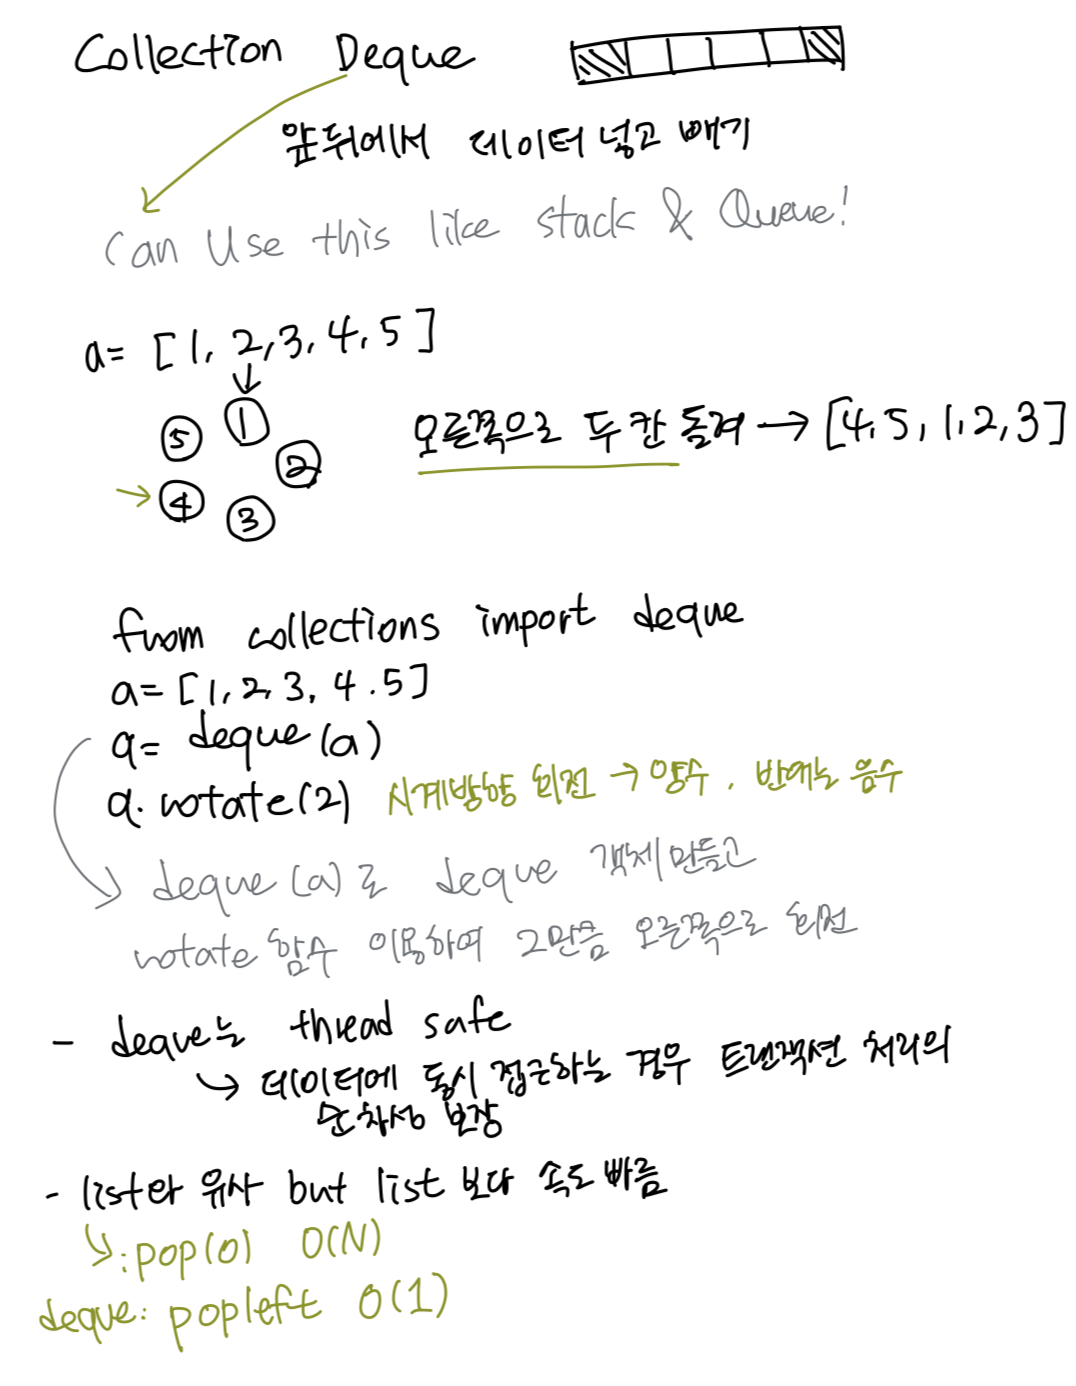 Collection Deque
앞뒤에서 데이터 넣고 빼기
Can Use this like stack & Queue!
a= [1, 2,3, 4, 5]
① ② ③ ④ ⑤
오른쪽으로 두 칸 돌려 → [4, 5, 1, 2, 3]
from collections import deque
a= [1, 2, 3, 4.5]
q= deque (a)
q. rotate(2) 시계방향 회전 → 양수, 반대는 음수
deque (a)로 deque 객체 만들고
rotate 함수 이용하여 2만큼 오른쪽으로 회전
- deque는 thread safe
↳ 데이터에 동시 접근하는 경우 트랜잭션 처리의
순차성 보장
- list와 유사 but list 보다 속도 빠름
↳: pop(0) O(N)
deque: popleft O(1)